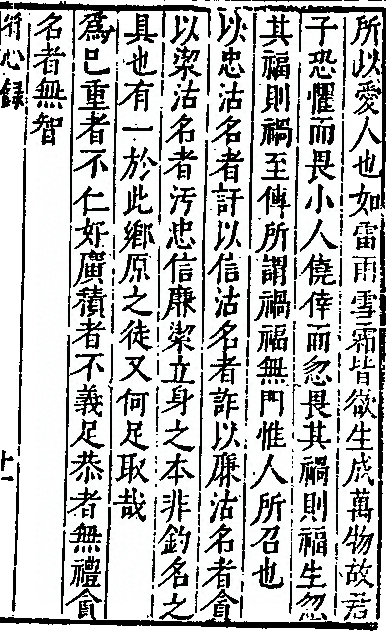 所以愛人也如雷雨雪霜皆欲生成萬物故君
子恐懼而畏小人僥倖而忽畏其禍則福生忽
其福則禍至傳所謂禍福無門惟人所召也
以忠沽名者訐以信沽名者詐以廉沽名者貪
以㓗沽名者汚忠信廉㓗立身之本非釣名之
具也有一於此鄉原之徒又何足取哉
爲已重者不仁好廣積者不義足恭者無禮貪
名者無智
省心錄
十一